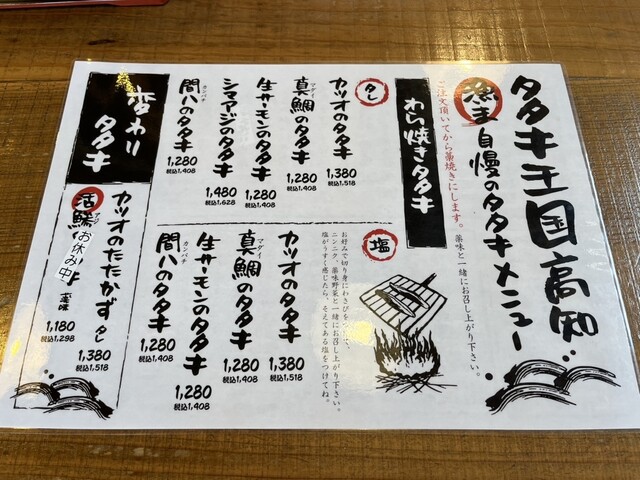 タタキ王国高知
漁王自慢のタタキメニュー
ご注文頂いてから藁焼きにします。薬味と一緒にお召し上がり下さい。
わら焼きタタキ
タレ
カツオのタタキ
1,380
税込1,518
マダイ
真鯛のタタキ
1,280
税込1,408
生サーモンのタタキ
1,280
税込1,408
シマアジのタタキ
1,480
税込1,628
カンパチ
間八のタタキ
1,280
税込1,408
塩
お好みで切り身にわさびをつけて、
ニンニク、薬味野菜と一緒にお召し上がり下さい。
塩がうすく感じたら、そえてある塩をつけてね。
カツオのタタキ
1,380
税込1,518
マダイ
真鯛のタタキ
1,280
税込1,408
生サーモンのタタキ
1,280
税込1,408
カンパチ
間八のタタキ
1,280
税込1,408
変わり
タタキ
カツオのたたかず タレ
1,380
税込1,518
活鯖
お休み中
1,180
税込1,298